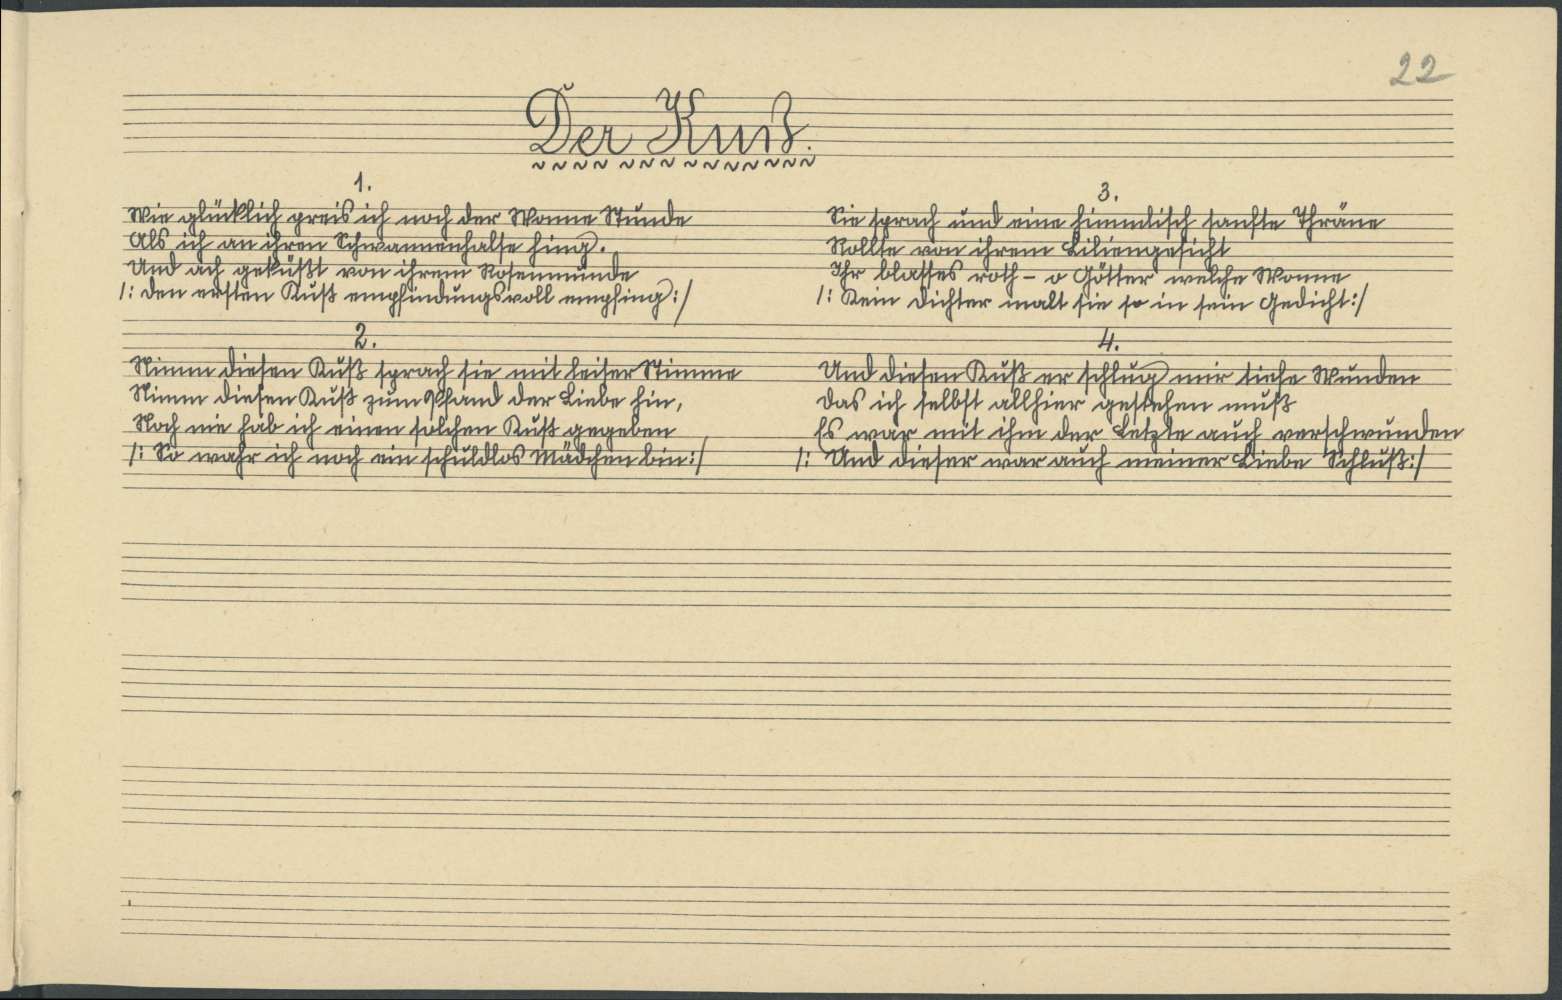 22
Der Kuß.
1.
Wie glücklich preis ich noch der Wonne Stunde
Als ich an ihren Schwannenhalse hing.
Und ach geküßt von ihrem Rosenmunde
/: den ersten Kuß empfindungsvoll empfing :/
2.
Nimm diesen Kuß sprach sie mit leiser Stimme
Nimm diesen Kuß zum Pfand der Liebe hin,
Noch nie hab ich einen solchen Kuß gegeben
/: So wahr ich noch ein schuldlos Mädchen bin :/
3.
Sie sprach und eine himmlisch sanfte Thräne
Rollte von ihrem Liliengesicht
Ihr blasses roth – o Götter welche Wonne
/: Kein Dichter malt sie so in sein Gedicht :/
4.
Und diesen Kuß er schlug mir tiefe Wunden
Das ich selbst allhier gestehen muß
Es war mit ihm der Letzte auch verschwunden
/: Und dieser war auch meiner Liebe Schluß :/